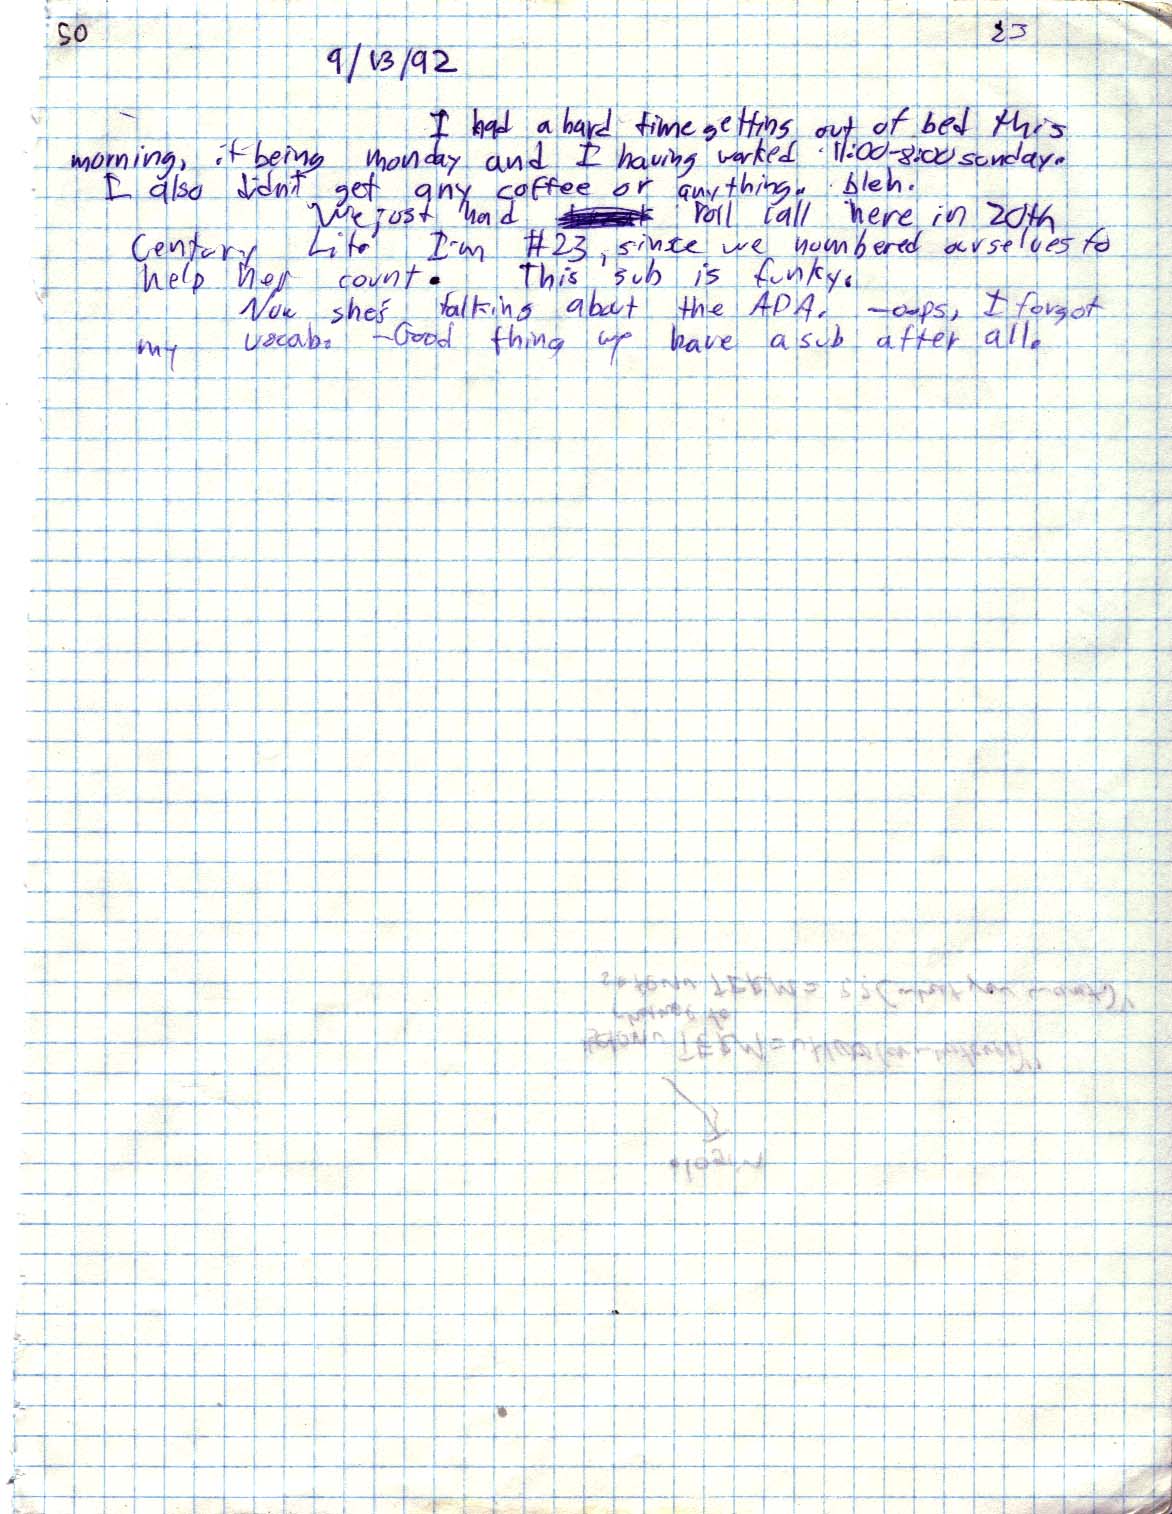 50 23
9/13/92
I had a hard time getting out of bed this
morning, it being monday and I having worked 11:00-8:00 sunday.
I also didn't get any coffee or anything. bleh.
We just had roll call here in 20th
Century Lit. I'm #23, since we numbered ourselves to
help her count. This sub is funky.
Now she's talking about the ADA. -oops, I forgot
my vocab. -Good thing we have a sub after all.
setenv TERM = ?? (what you want)
change to
setenv TERM =
login